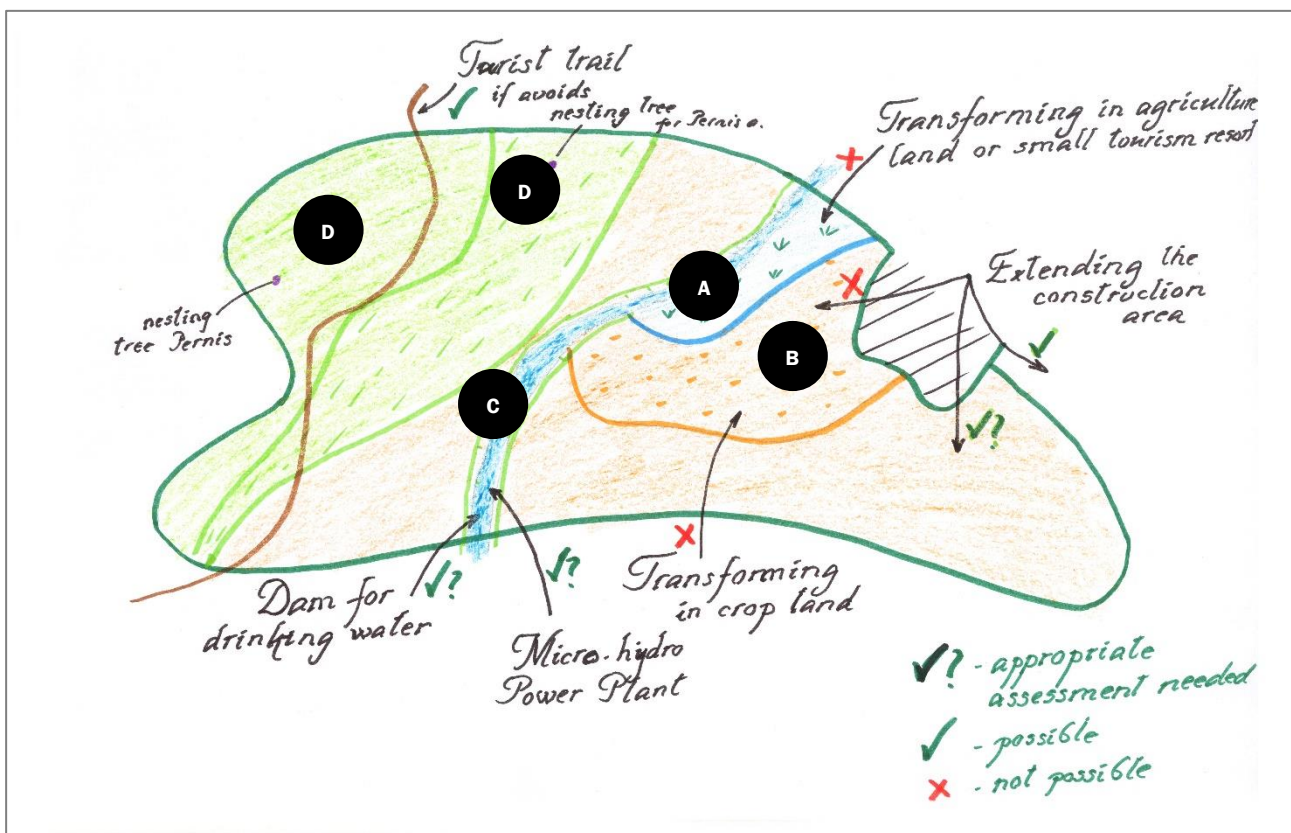 Tourist trail
if avoids
nesting tree
for Pernis a.
Transforming in agriculture
land or small tourism resort
D
D
A
nesting
tree Pernis
Extending the
construction
area
B
C
Dam for
drinking water
Micro-hydro
Power Plant
Transforming
in crop land
✓? - appropriate
assessment needed
✓ - possible
✗ - not possible